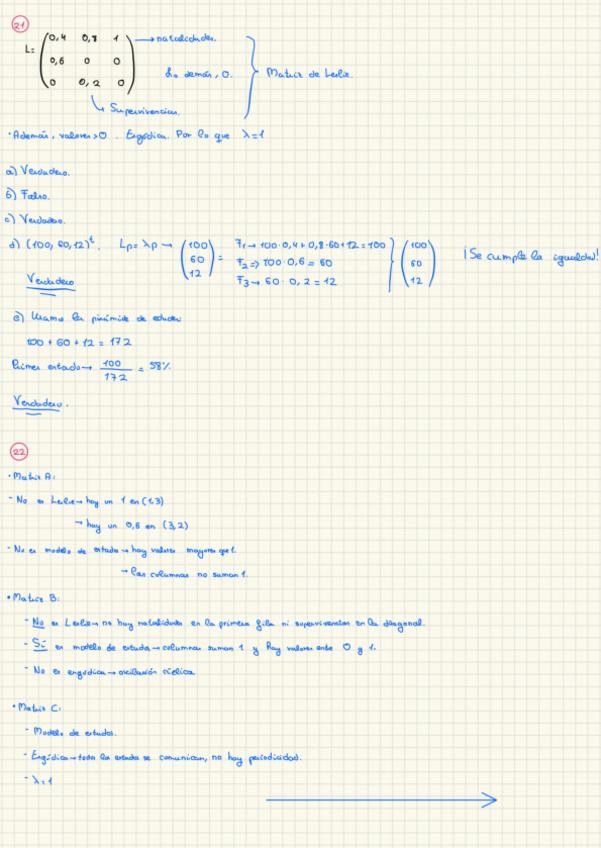 21
L= (0,4 0,8 1 → natalidades.
0,6 0 0 Lo demás, 0. Matriz de Leslie.
0 0,2 0)
↳ Supervivencias.
· Además, valores > 0. Ergódica. Por lo que λ=1
a) Verdadero.
b) Falso.
c) Verdadero.
d) (100, 60, 12)^t. Lp = λp → (100 60 12) = F1 → 100·0,4 + 0,8·60 + 12 = 100 (100 ¡Se cumple la igualdad!
F2 ⇒ 100·0,6 = 60 60
F3 → 60·0,2 = 12 12)
Verdadero
e) Usamos la pirámide de edades
100 + 60 + 12 = 172
Primer estado → 100/172 = 58%
Verdadero.
22
· Matriz A:
- No es Leslie → hay un 1 en (1,3)
→ hay un 0,6 en (3,2)
- No es modelo de estado → hay valores mayores que 1.
→ las columnas no suman 1.
· Matriz B:
- No es Leslie → no hay natalidades en la primera fila ni supervivencias en la diagonal.
- Sí es modelo de estados → columnas suman 1 y hay valores entre 0 y 1.
- No es ergódica → oscilación cíclica
· Matriz C:
- Modelo de estados.
- Ergódica → todos los estados se comunican, no hay periodicidad.
- λ=1